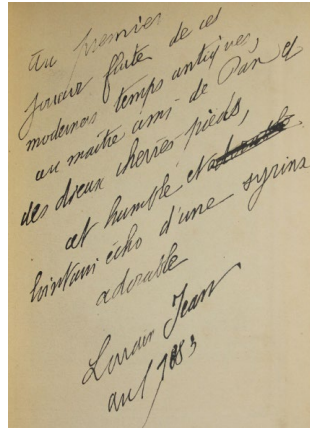 Au premier
joueur flute de ces
modernes temps antiques,
au maître ami de Pan et
des dieux chèvres-pieds,
cet humble et
lointain écho d'une syrinx
adorable
Lorrain Jean
avril 1883